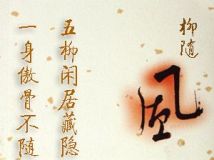 柳随
風
五柳闲居藏隐
一身傲骨不随